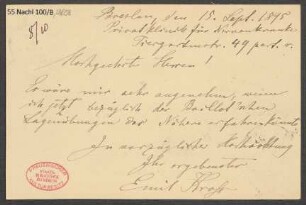 55 Nachl 100/B,
Breslau, den 15. Sept. 1895
Privatklinik für Nervenkranke
Tiergartenstr. 49 part. r.
8/10
Hochgeehrte Herren!
Es wäre mir sehr angenehm, wenn
ich jetzt bezüglich der Baillot'schen
das Nähere erfahren könnte.
In vorzüglicher Hochachtung
Ihr ergebenster
Emil Kross